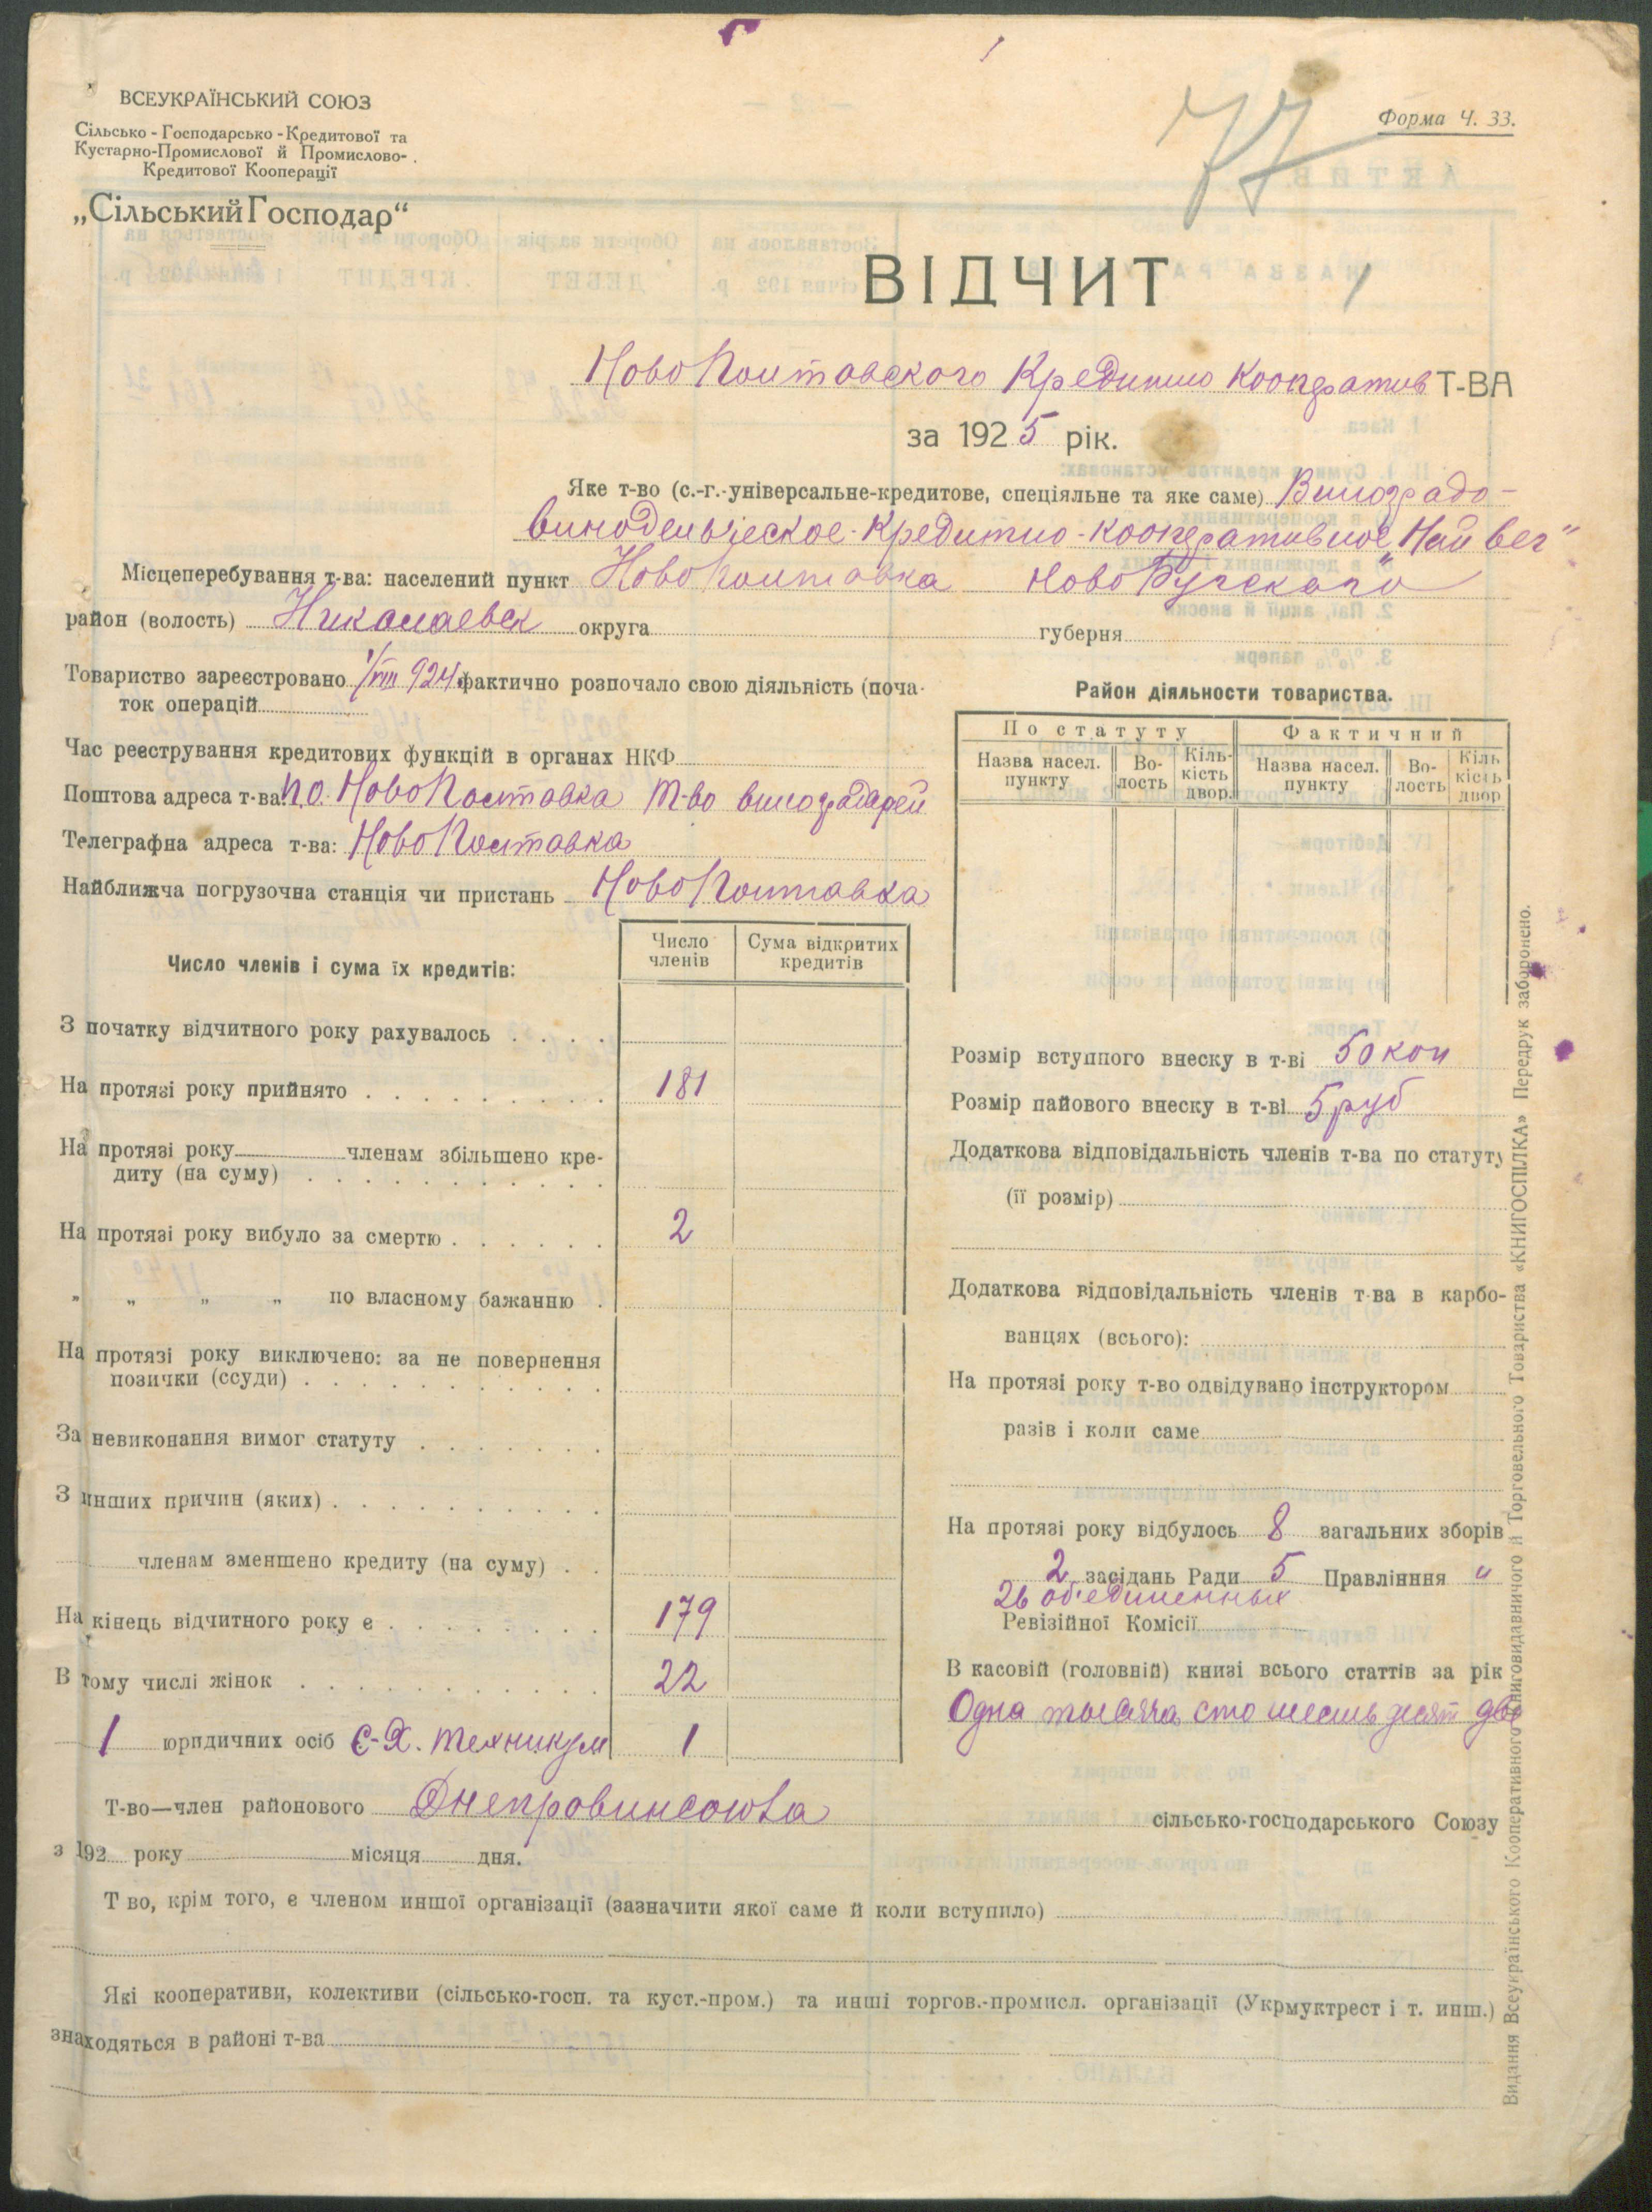 ВСЕУКРАЇНСЬКИЙ СОЮЗ
Сільсько - Господарсько - Кредитової та
Кустарно-Промислової й Промислово-
Кредитової Кооперації
„Сільський Господар“
Форма Ч. 33.
77
ВІДЧИТ
1
НовоПолтавского Кредитно Кооператив Т-ВА
за 1925 рік.
Яке т-во (с.-г.-універсальне-кредитове, спеціяльне та яке саме) Виноградо-
винодельческое-Кредитно-кооперативное „Най вег“
Місцеперебування т-ва: населений пункт НовоПолтавка НовоБугского
район (волость) Николаевск округа губерня
Товариство зареєстровано 1/VIII 924 фактично розпочало свою діяльність (поча-
ток операцій
Час реєстрування кредитових функцій в органах НКФ
Поштова адреса т-ва: п.о. НовоПолтавка т-во виноградарей
Телеграфна адреса т-ва: НовоПолтавка
Найближча погрузочна станція чи пристань НовоПолтавка
Район діяльности товариства.
По статуту Фактичний
Назва насел. пункту Во-лость Кіль-кість двор. Назва насел. пункту Во-лость Кіль кість двор
Число членів і сума їх кредитів: Число членів Сума відкритих кредитів
З початку відчитного року рахувалось . . . .
На протязі року прийнято . . . . . . . . . 181
На протязі року членам збільшено кре-
диту (на суму) . . . . . . . . . . .
На протязі року вибуло за смертю . . . . . . 2
„ „ „ „ по власному бажанню .
На протязі року виключено: за не повернення
позички (ссуди) . . . . . . . . . . .
За невиконання вимог статуту . . . . . . .
З инших причин (яких) . . . . . . . . . .
членам зменшено кредиту (на суму) . .
На кінець відчитного року є . . . . . . . . 179
В тому числі жінок . . . . . . . . . . . 22
1 юридичних осіб С-Х. техникум 1
Розмір вступного внеску в т-ві 50 коп
Розмір пайового внеску в т-ві 5 руб
Додаткова відповідальність членів т-ва по статуту
(її розмір)
Додаткова відповідальність членів т-ва в карбо-
ванцях (всього):
На протязі року т-во одвідувано інструктором
разів і коли саме
На протязі року відбулось 8 загальних зборів
2 засідань Ради 5 Правлінння „
26 об'единенных
Ревізійної Комісії
В касовій (головній) книзі всього статтів за рік
Одна тысяча сто шестьдесят две
Т-во—член районового Днепровинсоюза сільсько-господарського Союзу
з 192 року місяця дня.
Т во, крім того, є членом иншої організації (зазначити якої саме й коли вступило)
Які кооперативи, колективи (сільсько-госп. та куст.-пром.) та инші торгов.-промисл. організації (Укрмуктрест і т. инш.)
знаходяться в районі т-ва
Видання Всеукраїнського Кооперативного Книговидавничого й Торговельного Товариства «КНИГОСПІЛКА» Передрук заборонено.